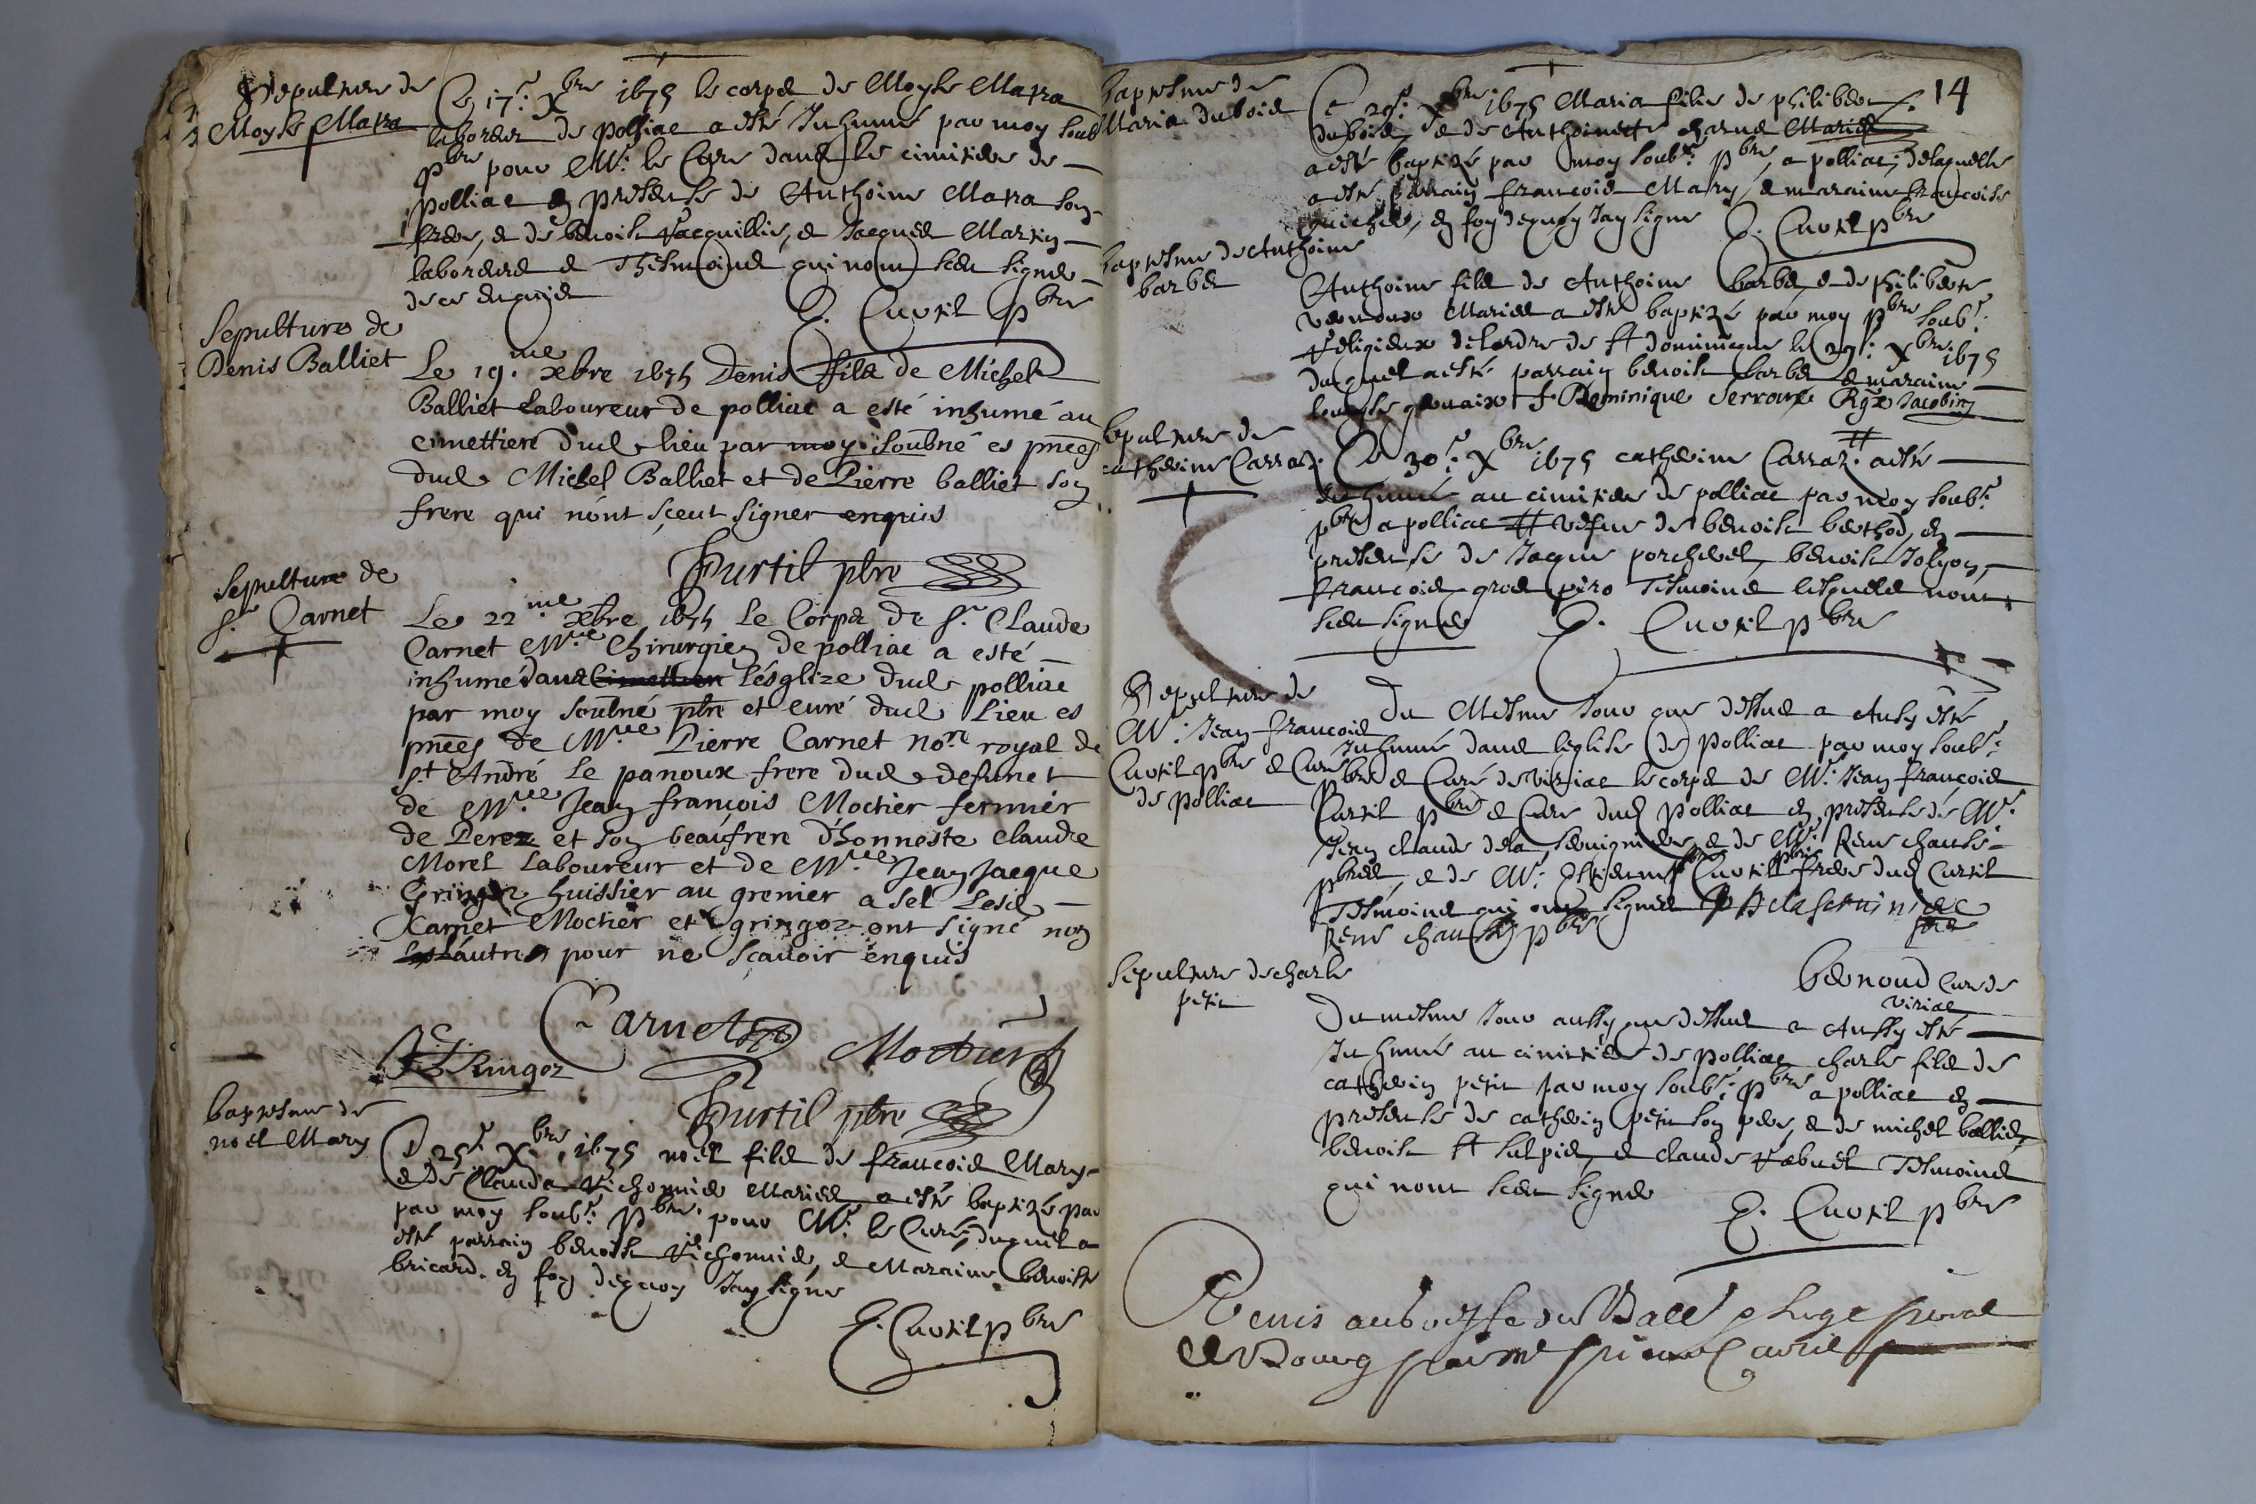 Sepulture de
Moyse Marra
Ce 17e. Xbre 1675 le corps de Moyse Marra
laboreur de polliac a esté Inhumé par moy soub
pbre pour Mr. le Cure dans le cimitiere de
polliac en presense de Anthoine Marra son
frere, et de benoist Vacquillie, et Jacques Martin
laboreurs et Thesmoins qui nont sceu signer
de ce enquis
E. Curtil pbre
Sepulture de
Denis Balliet
Le 19.me xbre 1675 Denis fils de Michel
Balliet Laboureur de polliac a esté inhumé au
cimettiere dud. lieu par moy soubné es pñces
dud. Michel Balliet et de Pierre balliet son
frere qui nónt sçeut signer enquis
Curtil pbre
Sepulture de
Sr. Carnet
Le 22me xbre 1675 Le Corps de Sr. Claude
Carnet Mre Chirurgien de polliac a esté
inhumé dans Cimettiere L'ésglize dud. polliac
par moy soubné pbre et curé dud. Lieu es
pñces de Mre Pierre Carnet nore royal de
St André Le panoux frere dud. defunct
de Mre Jean françois Moctier fermier
de Perez et son beaufrere d'honneste Claude
Morel Laboureur et de Mre Jean Jacque
Gringoz huissier au grenier a sel Lesd.
Carnet Moctier et gringoz ont signé non
Les autres pour ne Scauoir enquis
Carnet
Moctier
Gringoz
Curtil pbre
baptesme de
noel Mary
Ce 25e. Xbre. 1675 noel fils de francois Mary
et de Clauda Vichomie Maries a esté baptizé par
par moy soubs. pbre. pour Mr. le Curé, duquel a
esté parrain benoist Vichomie, et Maraine benoiste
bricard. en foy dequoy Jay signe
E. Curtil pbre
14
baptesme de
Maria dubois
Ce 29e. Xbre 1675 Maria fille de philibert
dubois, et de Anthoinette charue Maries
a esté baptizé par moy soubs. pbre, a polliac, de laquelle
a esté parrain francois Mary, et maraine francoise
guichet, en foy dequoy Jay signe E. Curtil pbre
baptesme de Anthoine
barbet
Anthoine fils de Anthoine barbet, et de philiberte
Maries a esté baptizé par moy pbre soubs.
Religieux de lordre de St dominique le 29e. Xbre. 1675
duquel a esté parrain benoist barbet et maraine
f. Dominique Serroux Rgx Jacobin
sepulture de
catherine Carraz.
Ce 30e. Xbre 1675 catherine Carraz. # a esté
Inhumé au cimitiere de polliac par moy soubs.
pbre a polliac # vefue de benoist berthod, en
presense de Jacque porcheret, benoist Jolyon,
francois gros piro Tesmoins lesquels nont
sceu signer E. Curtil pbre
Sepulture de
Mr. Jean francois
Curtil pbre et Cure
de polliac
Du Mesme Jour que dessus a Ausy esté
Inhumé dans leglise de polliac par moy soubs.
pbre et Curé de viriac le corps de Mr. Jean francois
Curtil pbre et Cure dud polliac en presense de Mr.
Jean claude dela seruigniere et de Mr. Rene
pbres, et de Mr. Estienne Curtil pbre frere dud Curtil
Tesmoins qui ont signes Delaseruiniere
pbre
Rene pbre
bernoud Cure de
viriac
sepulture de charle
petit
Du mesme Jour aussy que dessus a Aussy esté
Inhumé au cimitiere de polliac charle fils de
catherin petit par moy soubs. pbre a polliac en
presense de catherin petit son pere, et de michel balliet,
benoist St sulpice, et claude Tesmoins
qui nont sceu signer
E. Curtil pbre